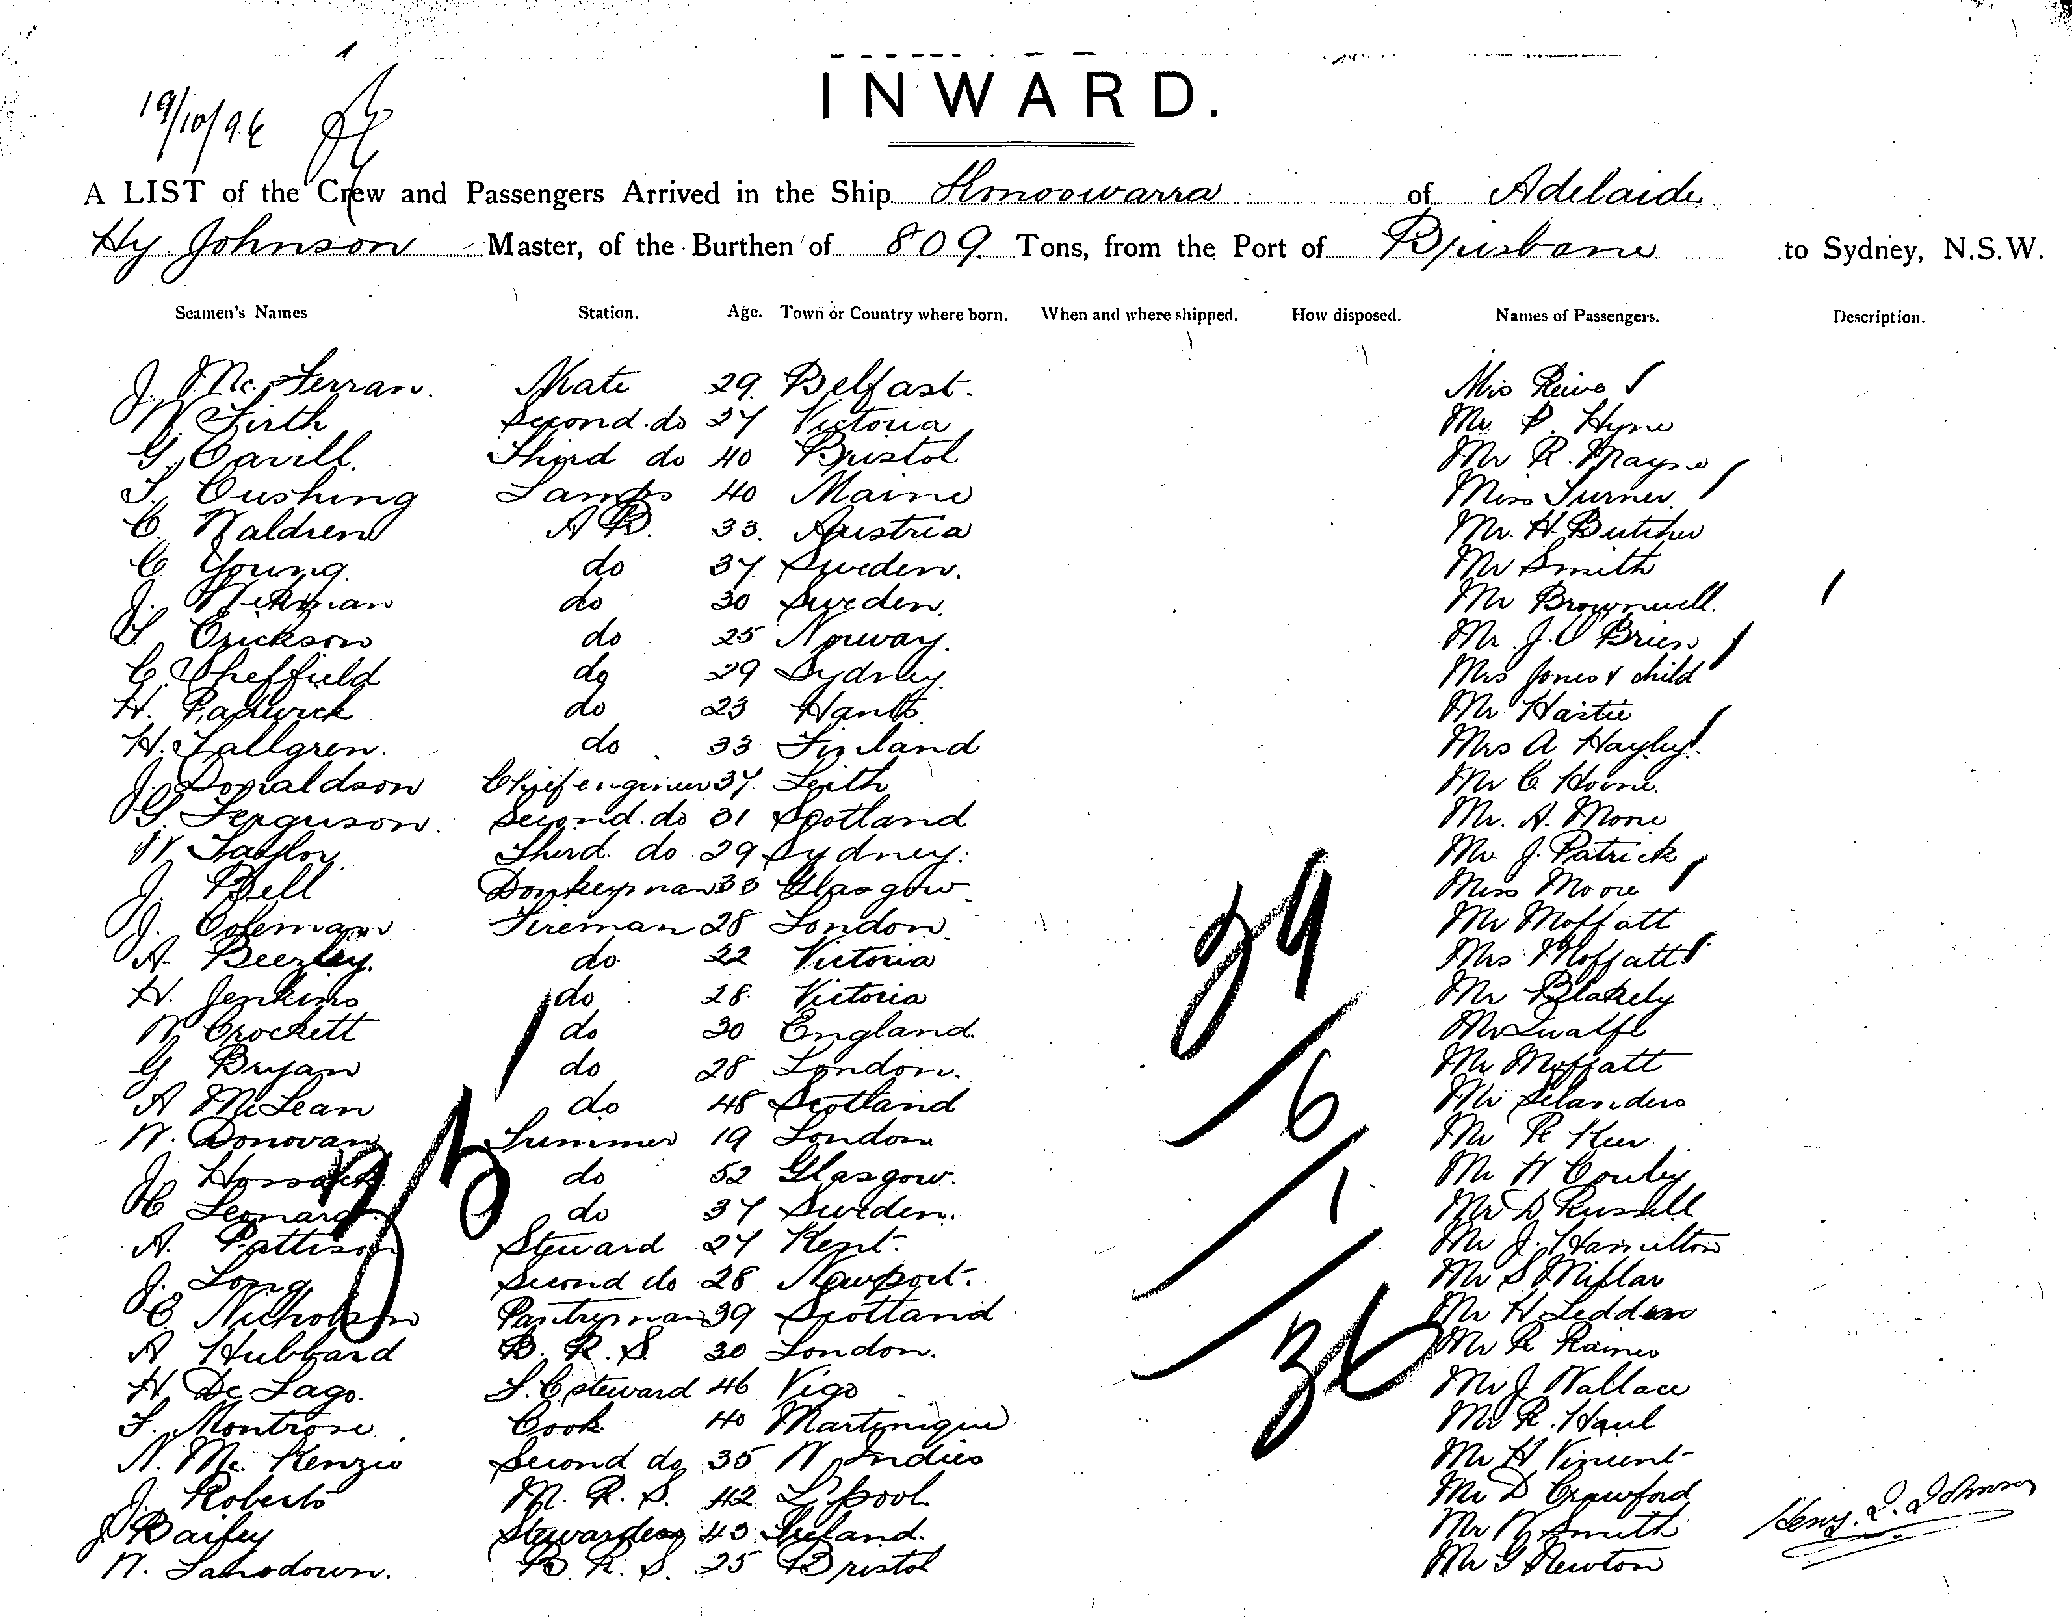 19/10/96
INWARD.
A LIST of the Crew and Passengers Arrived in the Ship Konoowarra of Adelaide
Hy Johnson Master, of the Burthen of 809 Tons, from the Port of Brisbane to Sydney, N.S.W.
Seamen's Names Station. Age. Town or Country where born. When and where shipped. How disposed. Names of Passengers. Description.
J. Mc Ferran. Mate 29 Belfast.
W. Firth Second do 27 Victoria Mr P. Hyne
G. Cavill. Third do 40 Bristol Mr R. Mayne
T. Cushing Lamps 40 Maine Miss Turner
C. Waldren A B. 33. Austria Mr. H. Butcher
C. Young. do 37 Sweden. Mr Smith
J. do 30 Sweden. Mr Brownwell.
Erickson do 25 Norway. Mr. J. O'Brien
C. Sheffield do 29 Sydney. Mrs Jones & child
H. Padwick do 23 Hants. Mr Hastie
H. Tallgren. do 33 Finland Mrs A Hayley
J. Donaldson Chief engineer 37. Leith Mr C. Horne.
G. Ferguson. Second. do 31 Scotland Mr. A. Mone
W Taylor Third. do 29 Sydney. Mr J. Patrick
J. Bell Donkeyman 33 Glasgow Miss Moore
J. Coleman Fireman 28 London. Mr Moffatt
A. Beezley. do 22 Victoria Mrs Moffatt
H. Jenkins do 28. Victoria Mr Blakely
W Crockett do 30 England. Mr
G Bryan do 28 London. Mr Moffatt
A McLean do 48 Scotland Mr Selanders
W. Donovan Trimmer 19 London Mr R Kerr
J. do 52 Glasgow. Mr W Conley
C Leonard do 37 Sweden. Mr D Russell
A. Pattison Steward 27 Kent. Mr J. Hamilton
J. Long Second do 28 Newport. Mr S Millar
C Nicholson Pantryman 39 Scotland Mr H Leddan
A Hubbard B. R. S. 30 London. Mr R Raines
H De Lago. S. C steward 46 Vigo Mr J Wallace
F. Montrose. Cook 40 Martinique Mr R. Haul
N. Mc Kenzie Second do 35 W Indies Mr H Vincent
J. Roberts M. R. S. 42 L'pool Mr D Crawford
J Baifey Stewardess 43 Ireland. Mr W Smith
W. Lansdown. B. R. S. 25 Bristol Mr G Newton
29
6
1
36